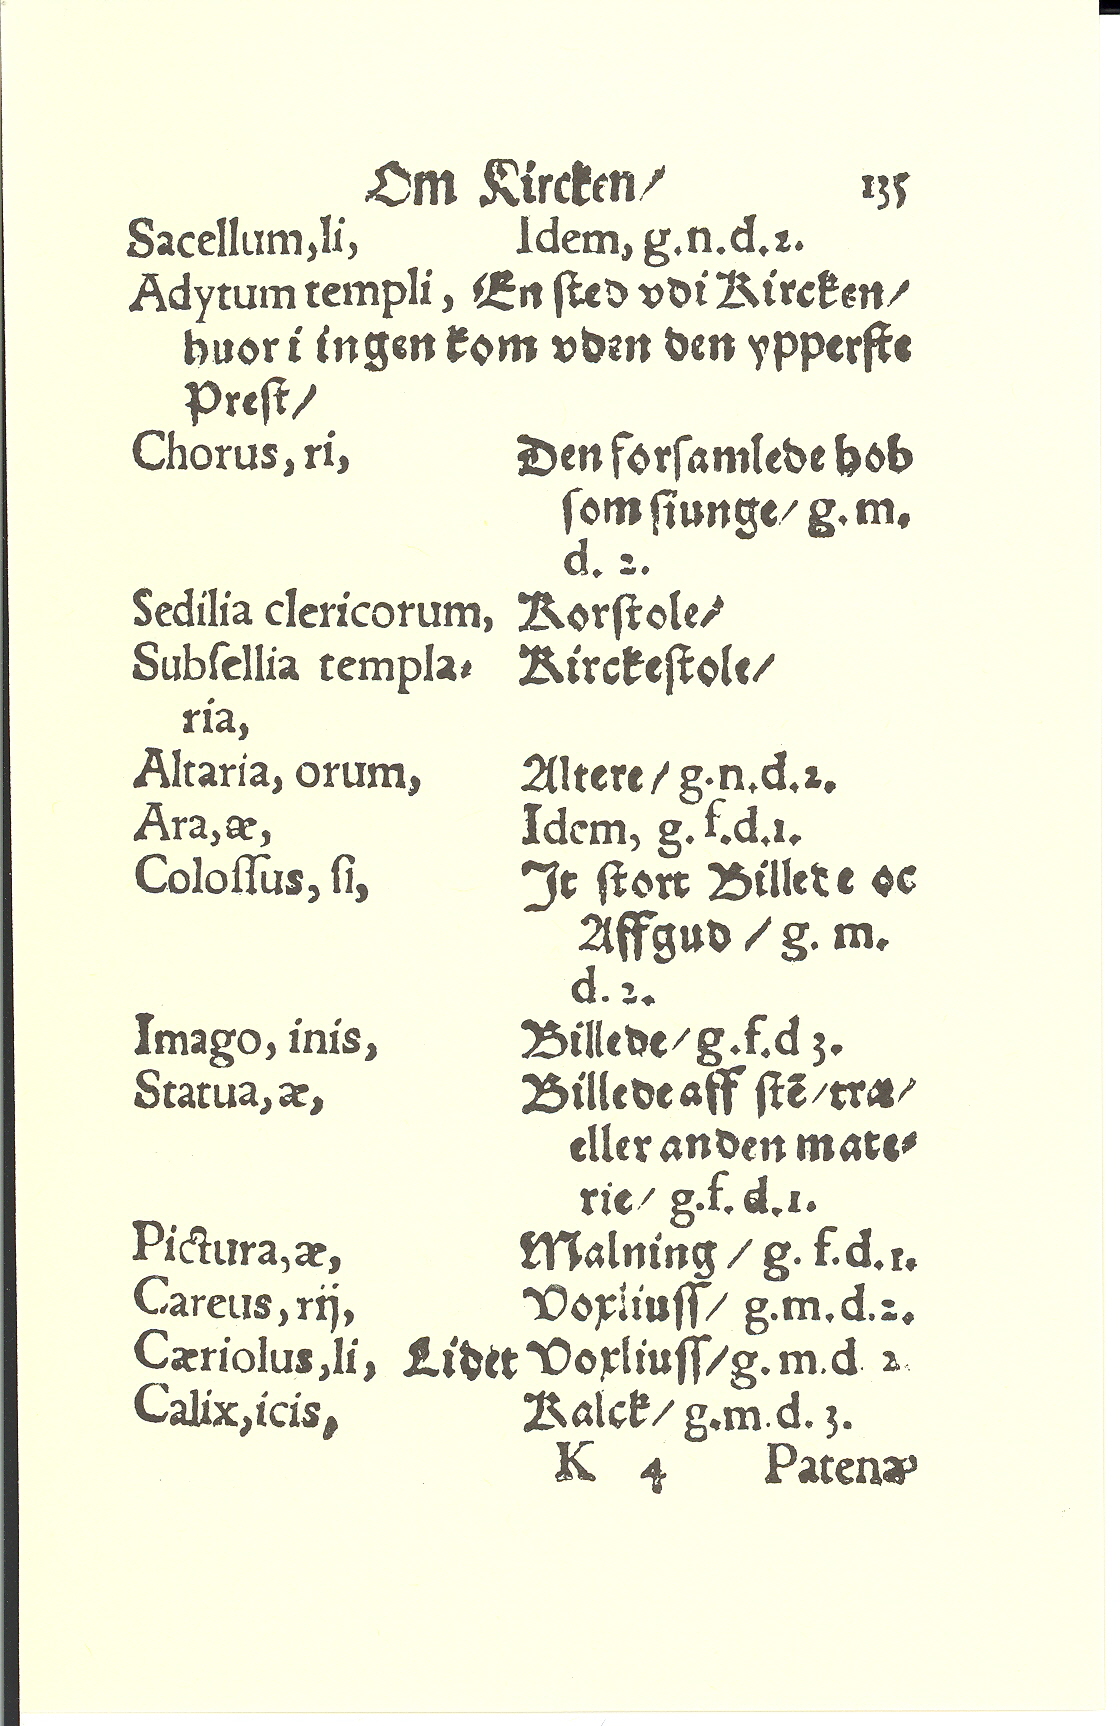 Om Kircken/ 135
Sacellum,li, Idem, g.n.d.2.
Adytum templi, En sted vdi Kircken/
huor i ingen kom vden den ypperste
Prest/
Chorus, ri, Den forsamlede hob
som siunge/ g.m.
d. 2.
Sedilia clericorum, Korstole/
Subſellia templa⸗ Kirckestole/
ria,
Altaria, orum, Altere/ g.n.d.2.
Ara,æ, Idem, g.f.d.1.
Coloſſus, ſi, It stort Billede oc
Affgud / g. m.
d. 2.
Imago, inis, Billede/ g.f.d 3.
Statua,æ, Billede aff stē/træ/
eller anden mate⸗
rie/ g.f.d.1.
Pictura,æ, Malning / g. f.d.1.
Careus, rij, Voxliuſſ/ g.m.d.2.
Cæriolus,li, Lidet Voxliuſſ/g.m.d. 2.
Calix,icis, Kalck/ g.m.d. 3.
K 4 Patenæ